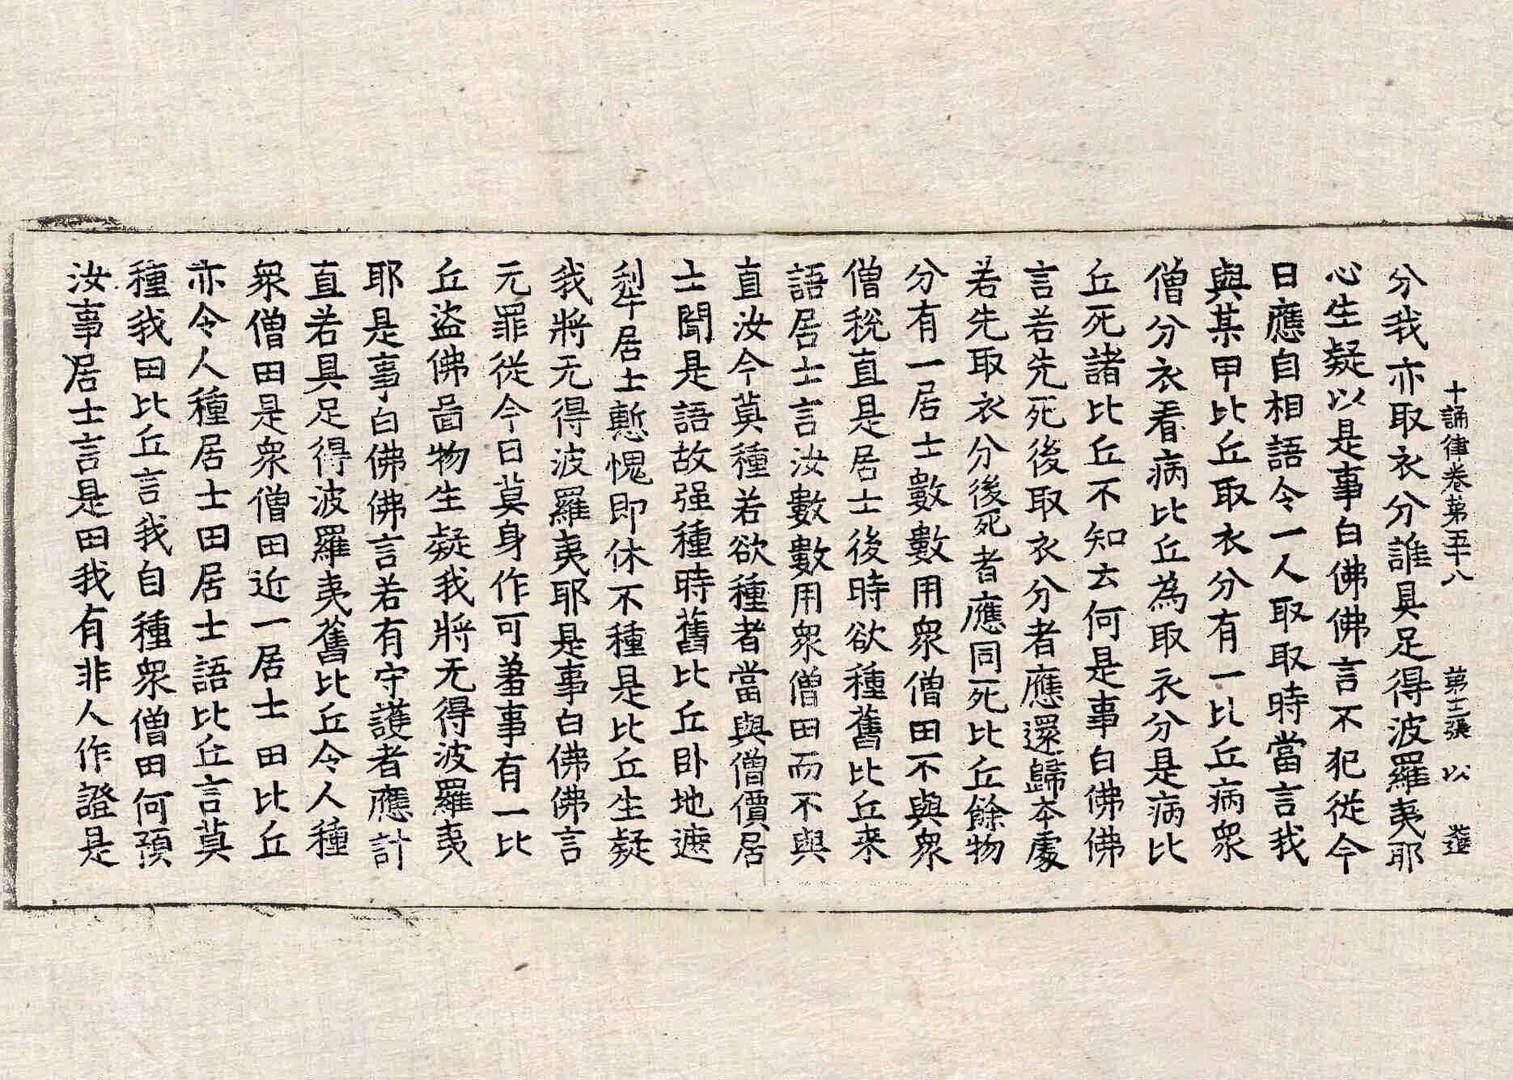 十誦律卷第五十八 第十二張 以 㘽
分我亦取衣分誰具足得波羅夷耶
心生疑以是事白佛佛言不犯從今
日應自相語令一人取取時當言我
與某甲比丘取衣分有一比丘病衆
僧分衣看病比丘為取衣分是病比
丘死諸比丘不知云何是事白佛佛
言若先死後取衣分者應還歸本處
若先取衣分後死者應同死比丘餘物
分有一居士數數用衆僧田不與衆
僧稅直是居士後時欲種舊比丘来
語居士言汝數數用衆僧田而不與
直汝今莫種若欲種者當與僧價居
士聞是語故强種時舊比丘卧地遮
犁居士慙愧即休不種是比丘生疑
我將无得波羅夷耶是事白佛佛言
无罪從今日莫身作可羞事有一比
丘盜佛啚物生疑我將无得波羅夷
耶是事白佛佛言若有守護者應計
直若具足得波羅夷舊比丘令人種
衆僧田是衆僧田近一居士田比丘
亦令人種居士田居士語比丘言莫
種我田比丘言我自種衆僧田何預
汝事居士言是田我有非人作證是